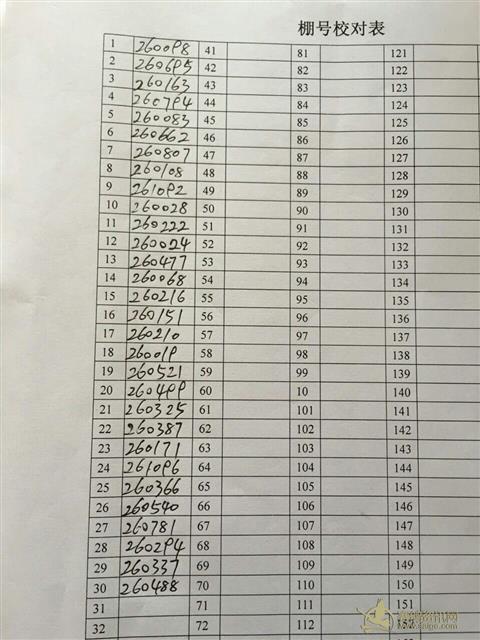 棚号校对表
1 260098 41 81 121
2 260695 42 82 122
3 260163 43 83 123
4 260794 44 84 124
5 260083 45 85 125
6 260662 46 86 126
7 260807 47 87 127
8 260108 48 88 128
9 261092 49 89 129
10 260028 50 90 130
11 260222 51 91 131
12 260024 52 92 132
13 260477 53 93 133
14 260068 54 94 134
15 260216 55 95 135
16 260151 56 96 136
17 260210 57 97 137
18 260019 58 98 138
19 260521 59 99 139
20 260499 60 10 140
21 260325 61 101 141
22 260387 62 102 142
23 260171 63 103 143
24 261096 64 104 144
25 260366 65 105 145
26 260540 66 106 146
27 260781 67 107 147
28 260294 68 108 148
29 260337 69 109 149
30 260488 70 110 150
31 71 111 151
32 72 112